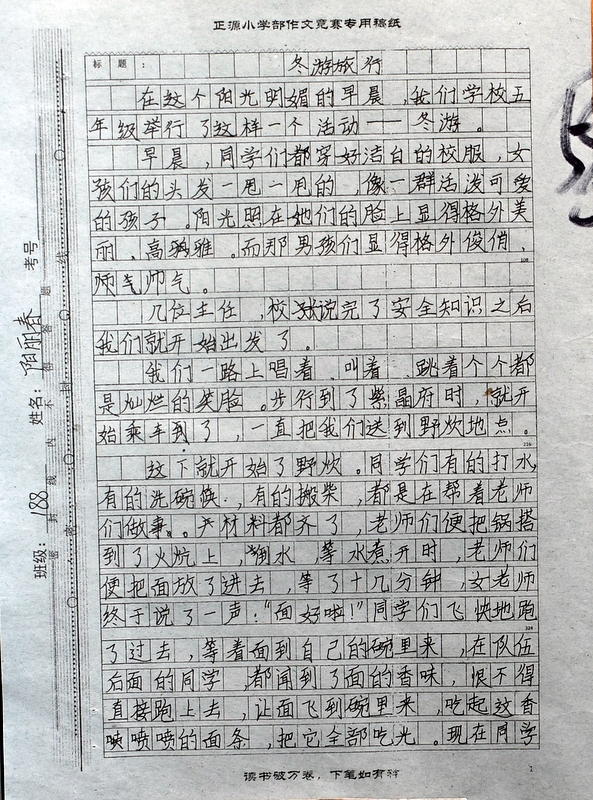 正源小学部作文竞赛专用稿纸
标题: 冬游旅行
在这个阳光明媚的早晨,我们学校五
年级举行了这样一个活动——冬游。
早晨,同学们都穿好洁白的校服,女
孩们的头发一甩一甩的,像一群活泼可爱
的孩子。阳光照在她们的脸上显得格外美
丽、高雅。而那男孩们显得格外俊俏、
帅气帅气。
几位主任、校长说完了安全知识之后
我们就开始出发了。
我们一路上唱着、叫着、跳着个个都
是灿烂的笑脸。步行到了紫晶府时,就开
始乘车到了,一直把我们送到野炊地点。
这下就开始了野炊。同学们有的打水,
有的洗碗筷,有的搬柴,都是在帮着老师
们做事。材料都齐了,老师们便把锅搭
到了火坑上,倒水,等水煮开时,老师们
便把面放了进去,等了十几分钟,女老师
终于说了一声:“面好啦!”同学们飞快地跑
了过去,等着面到自己的碗里来,在队伍
后面的同学,都闻到了面的香味,恨不得
直接跑上去,让面飞到碗里来,吃起这香
喷喷的面条,把它全部吃光。现在同学
108
216
324
读书破万卷,下笔如有神
1
班级: 188
姓名: 阳丽春
考号
密封线内不得答题